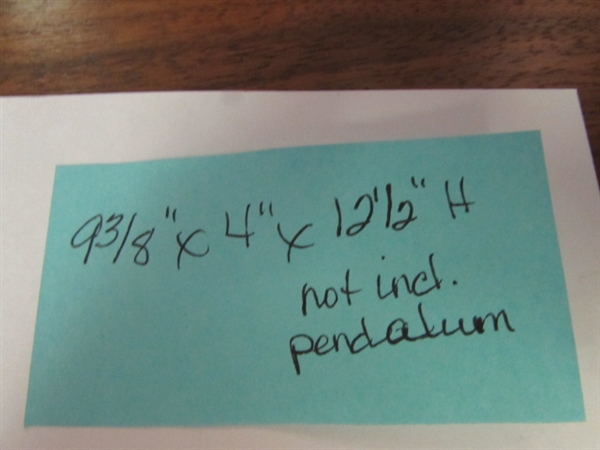 9 3/8" x 4" x 12 1/2" H
not incl.
pendalum